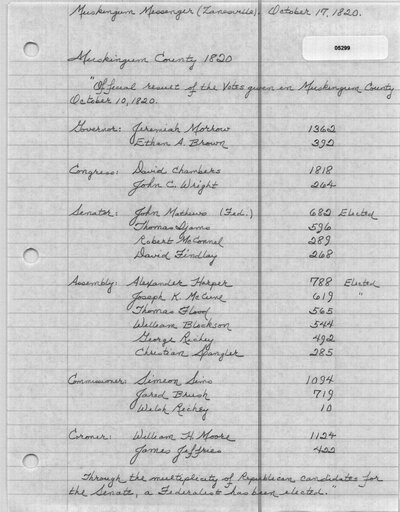 Muskingum Messenger (Zanesville). October 17, 1820.
05299
Muskingum County 1820
"Official result of the Votes given in Muskingum County
October 10, 1820.
Governor: Jeremiah Morrow 1362
Ethan A. Brown 392
Congress: David Chambers 1818
John C. Wright 264
Senator: John Mathews (Fed.) 682 Elected
Thomas Ijams 596
Robert McConnel 289
David Findlay 268
Assembly: Alexander Harper 788 Elected
Joseph K. McCune 619 "
Thomas Flood 565
William Blockson 544
George Richey 492
Christian Spangler 285
Commissioner: Simeon Sims 1094
Jared Brush 719
Welsh Richey 10
Coroner: William H. Moore 1124
James Jeffries 422
Through the multiplicity of Republican candidates for
the Senate, a Federalist has been elected."